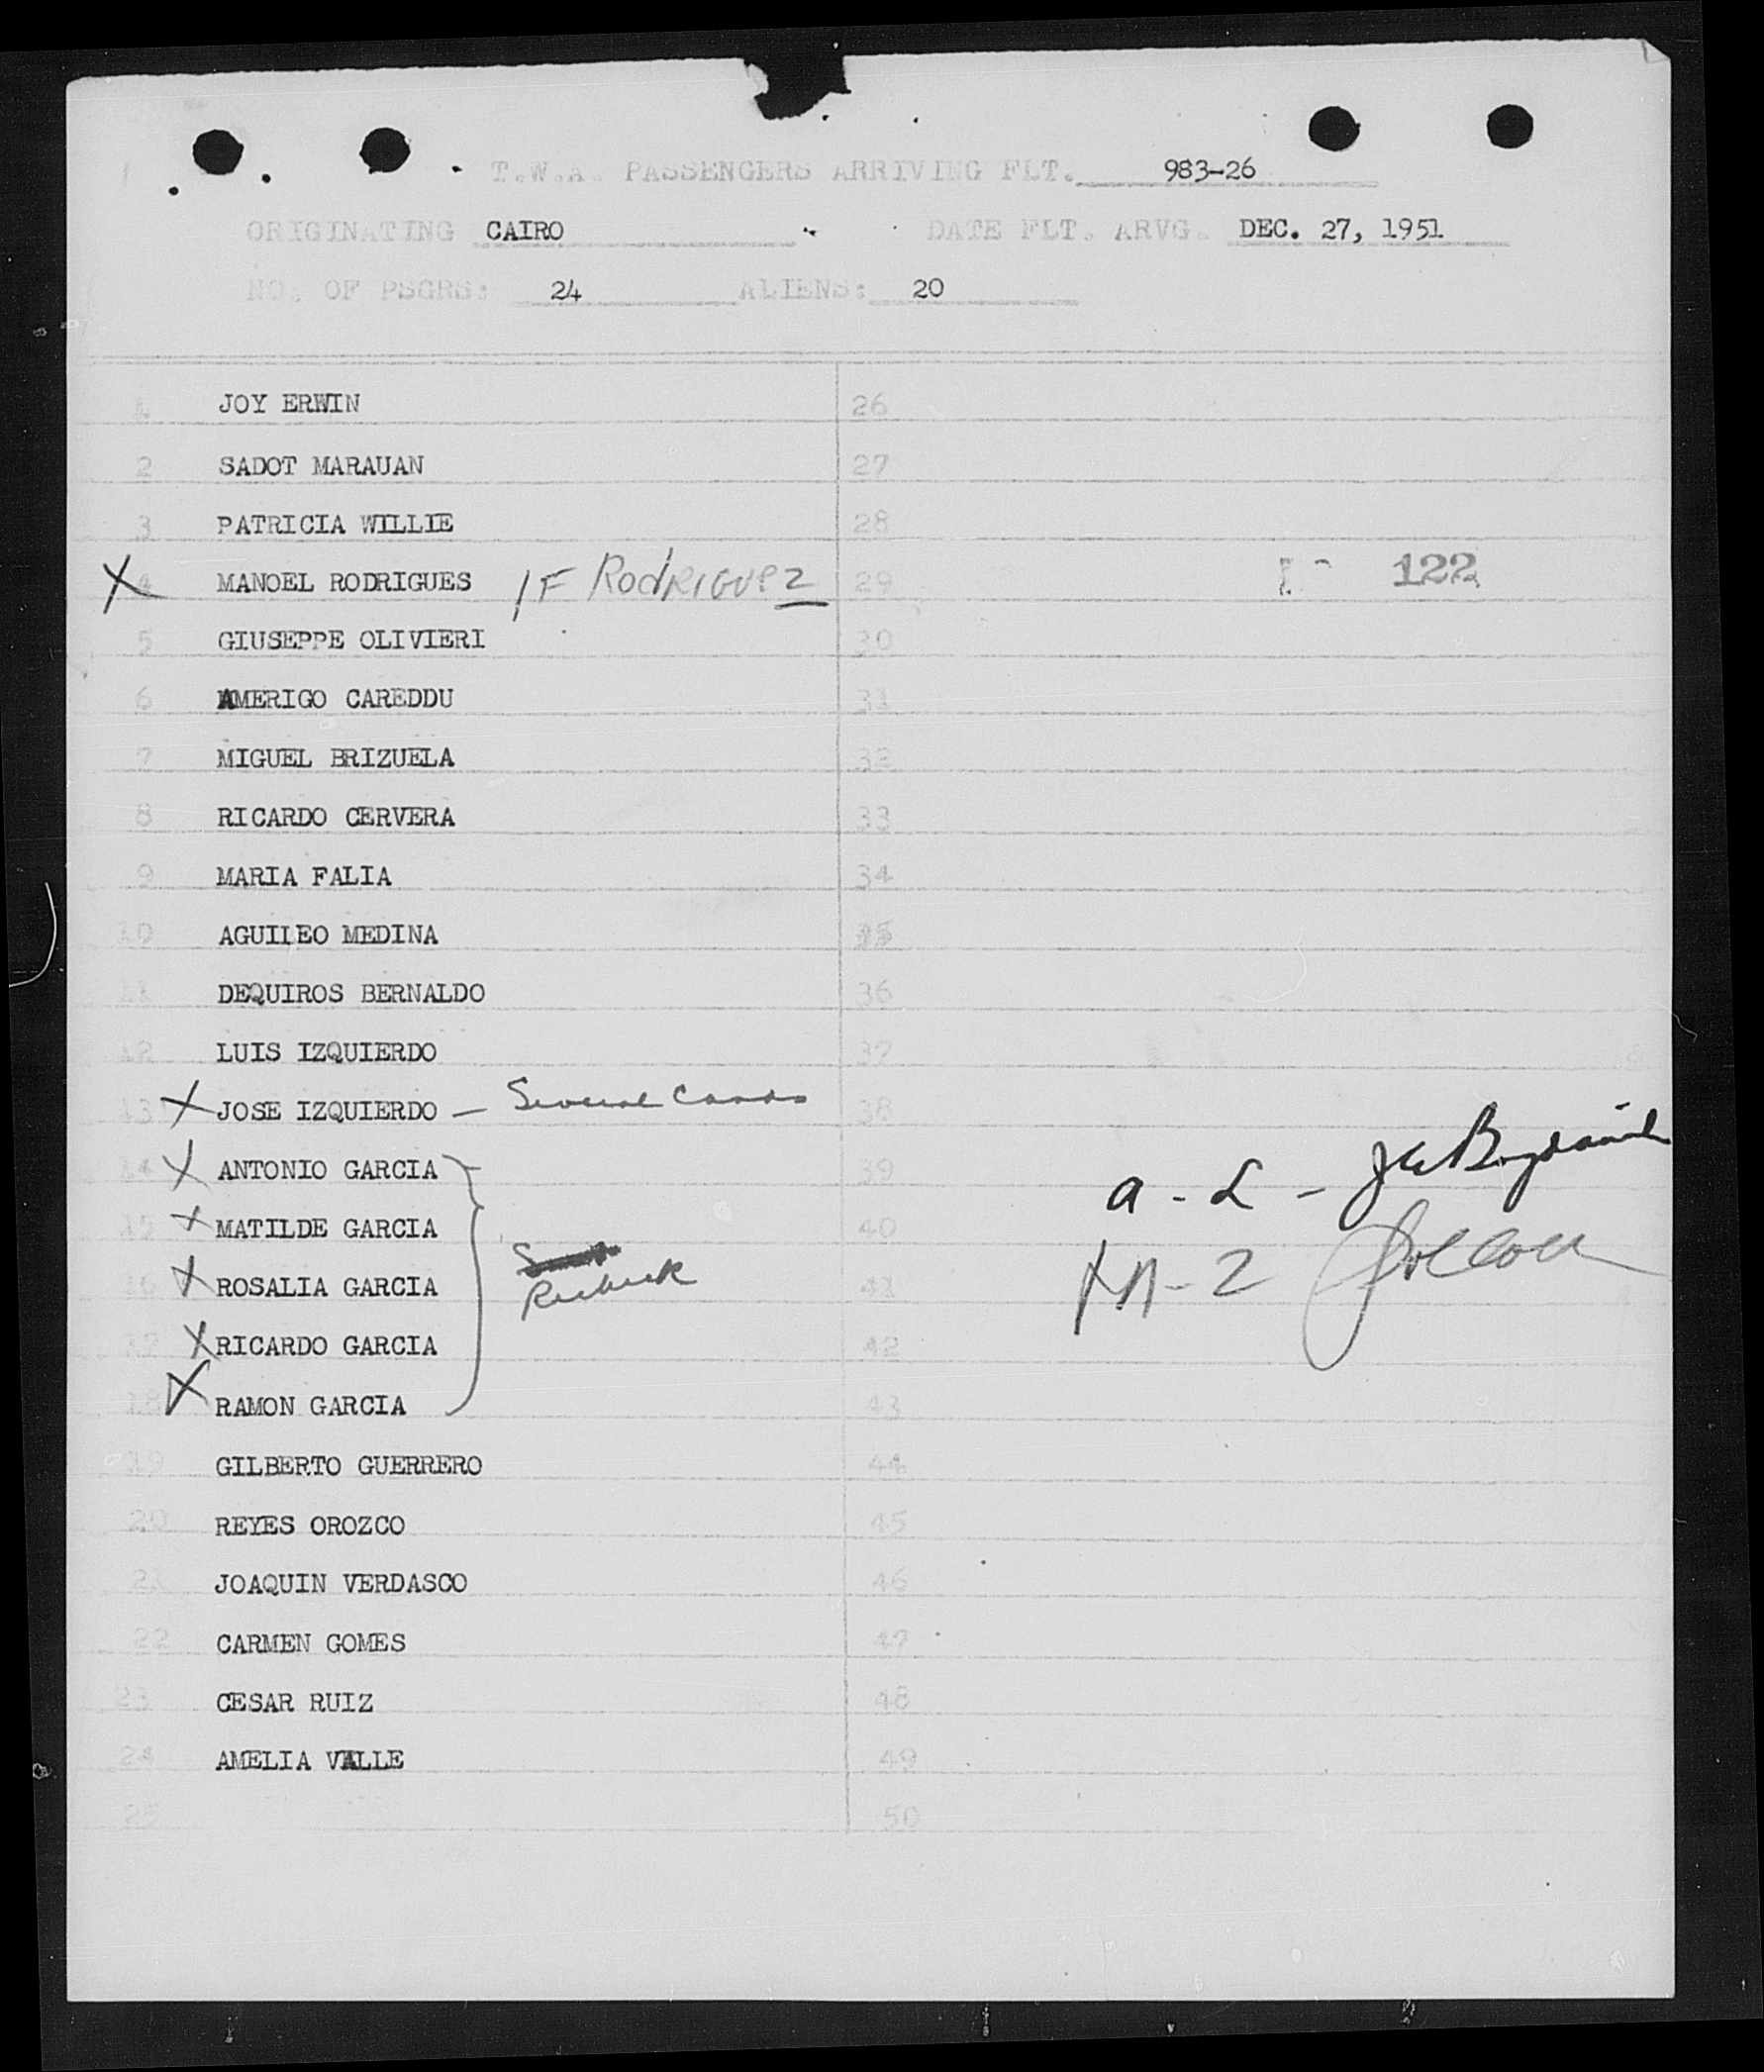 T.W.A. PASSENGERS ARRIVING FLT. 983-26
ORIGINATING CAIRO DATE FLT. ARVG. DEC. 27, 1951
NO. OF PSGRS: 24 ALIENS: 20
1 JOY ERWIN
2 SADOT MARAUAN
3 PATRICIA WILLIE
X 4 MANOEL RODRIGUES IF RODRIGUEZ
5 GIUSEPPE OLIVIERI
6 AMERIGO CAREDDU
7 MIGUEL BRIZUELA
8 RICARDO CERVERA
9 MARIA FALIA
10 AGUILEO MEDINA
11 DEQUIROS BERNALDO
12 LUIS IZQUIERDO
13 X JOSE IZQUIERDO — Several Cards
14 X ANTONIO GARCIA
15 X MATILDE GARCIA
16 X ROSALIA GARCIA
Recheck
17 X RICARDO GARCIA
18 X RAMON GARCIA
19 GILBERTO GUERRERO
20 REYES OROZCO
21 JOAQUIN VERDASCO
22 CARMEN GOMES
23 CESAR RUIZ
24 AMELIA VALLE
25
26
27
28
29 122
30
31
32
33
34
35
36
37
38
39
a - L -
40
41
M-Z
42
43
44
45
46
47
48
49
50